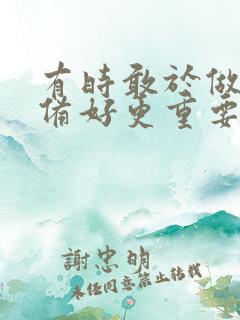 有時敢於做
備好更重要
謝忠明
未經同意禁止轉載